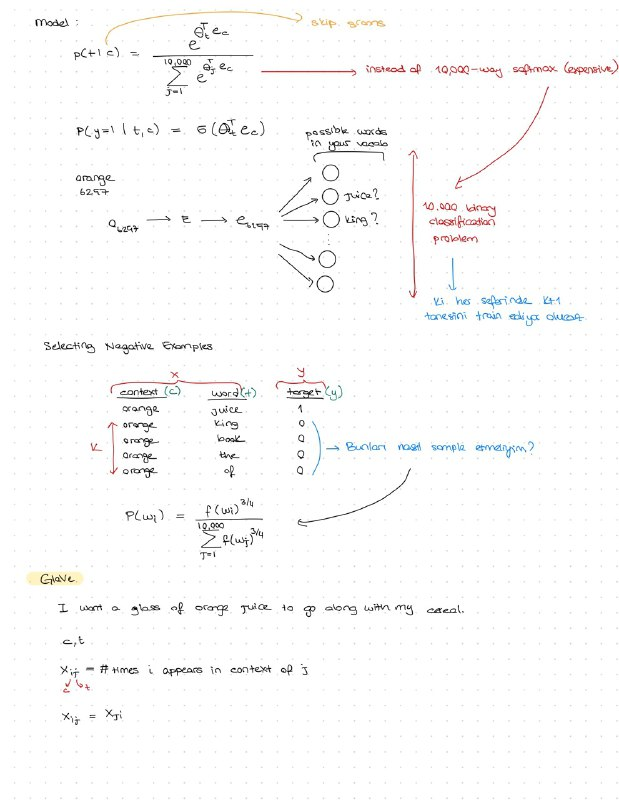 Model :
skip grams
p(t|c) = e^{θ_t^T e_c} / Σ_{j=1}^{10,000} e^{θ_j^T e_c}
instead of 10,000-way softmax (expensive)
P(y=1 | t,c) = σ(θ_t^T e_c)
possible words
in your vocab
orange
6297
juice?
O_{6297} → E → e_{6297}
king?
10.000 binary
classification
problem
ki her seferinde k+1
tanesini train ediyor oluruz.
Selecting Negative Examples
x
y
context (c) word (t) target (y)
orange juice 1
orange king 0
orange book 0
K
orange the 0
orange of 0
Bunları nasıl sample etmeliyim?
P(w_i) = f(w_i)^{3/4} / Σ_{j=1}^{10,000} f(w_j)^{3/4}
GloVe
I want a glass of orange juice to go along with my cereal.
c,t
X_{ij} = # times i appears in context of j
c t
X_{ij} = X_{ji}